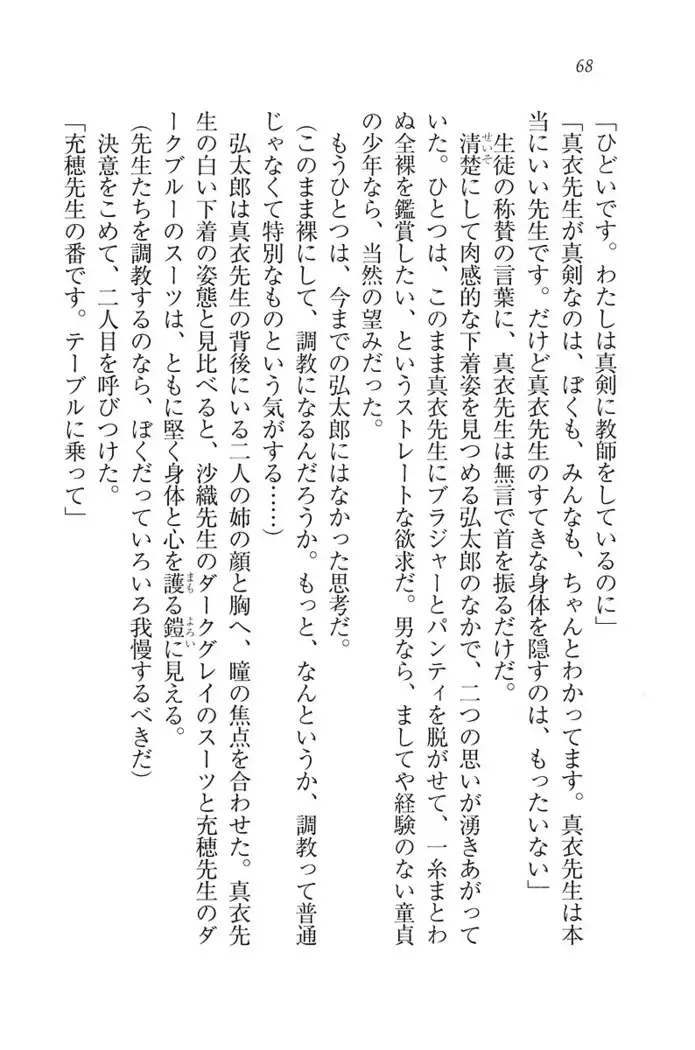 68
「ひどいです。わたしは真剣に教師をしているのに」
「真衣先生が真剣なのは、ぼくも、みんなも、ちゃんとわかってます。真衣先生は本
当にいい先生です。だけど真衣先生のすてきな身体を隠すのは、もったいない」
生徒の称賛の言葉に、真衣先生は無言で首を振るだけだ。
せいそ
清楚にして肉感的な下着姿を見つめる弘太郎のなかで、二つの思いが湧きあがって
いた。ひとつは、このまま真衣先生にブラジャーとパンティを脱がせて、一糸まとわ
ぬ全裸を鑑賞したい、というストレートな欲求だ。男なら、ましてや経験のない童貞
の少年なら、当然の望みだった。
もうひとつは、今までの弘太郎にはなかった思考だ。
(このまま裸にして、調教になるんだろうか。もっと、なんというか、調教って普通
じゃなくて特別なものという気がする……)
弘太郎は真衣先生の背後にいる二人の姉の顔と胸へ、瞳の焦点を合わせた。真衣先
生の白い下着の姿態と見比べると、沙織先生のダークグレイのスーツと充穂先生のダ
まも よろい
ークブルーのスーツは、ともに堅く身体と心を護る鎧に見える。
(先生たちを調教するのなら、ぼくだっていろいろ我慢するべきだ)
決意をこめて、二人目を呼びつけた。
「充穂先生の番です。テーブルに乗って」